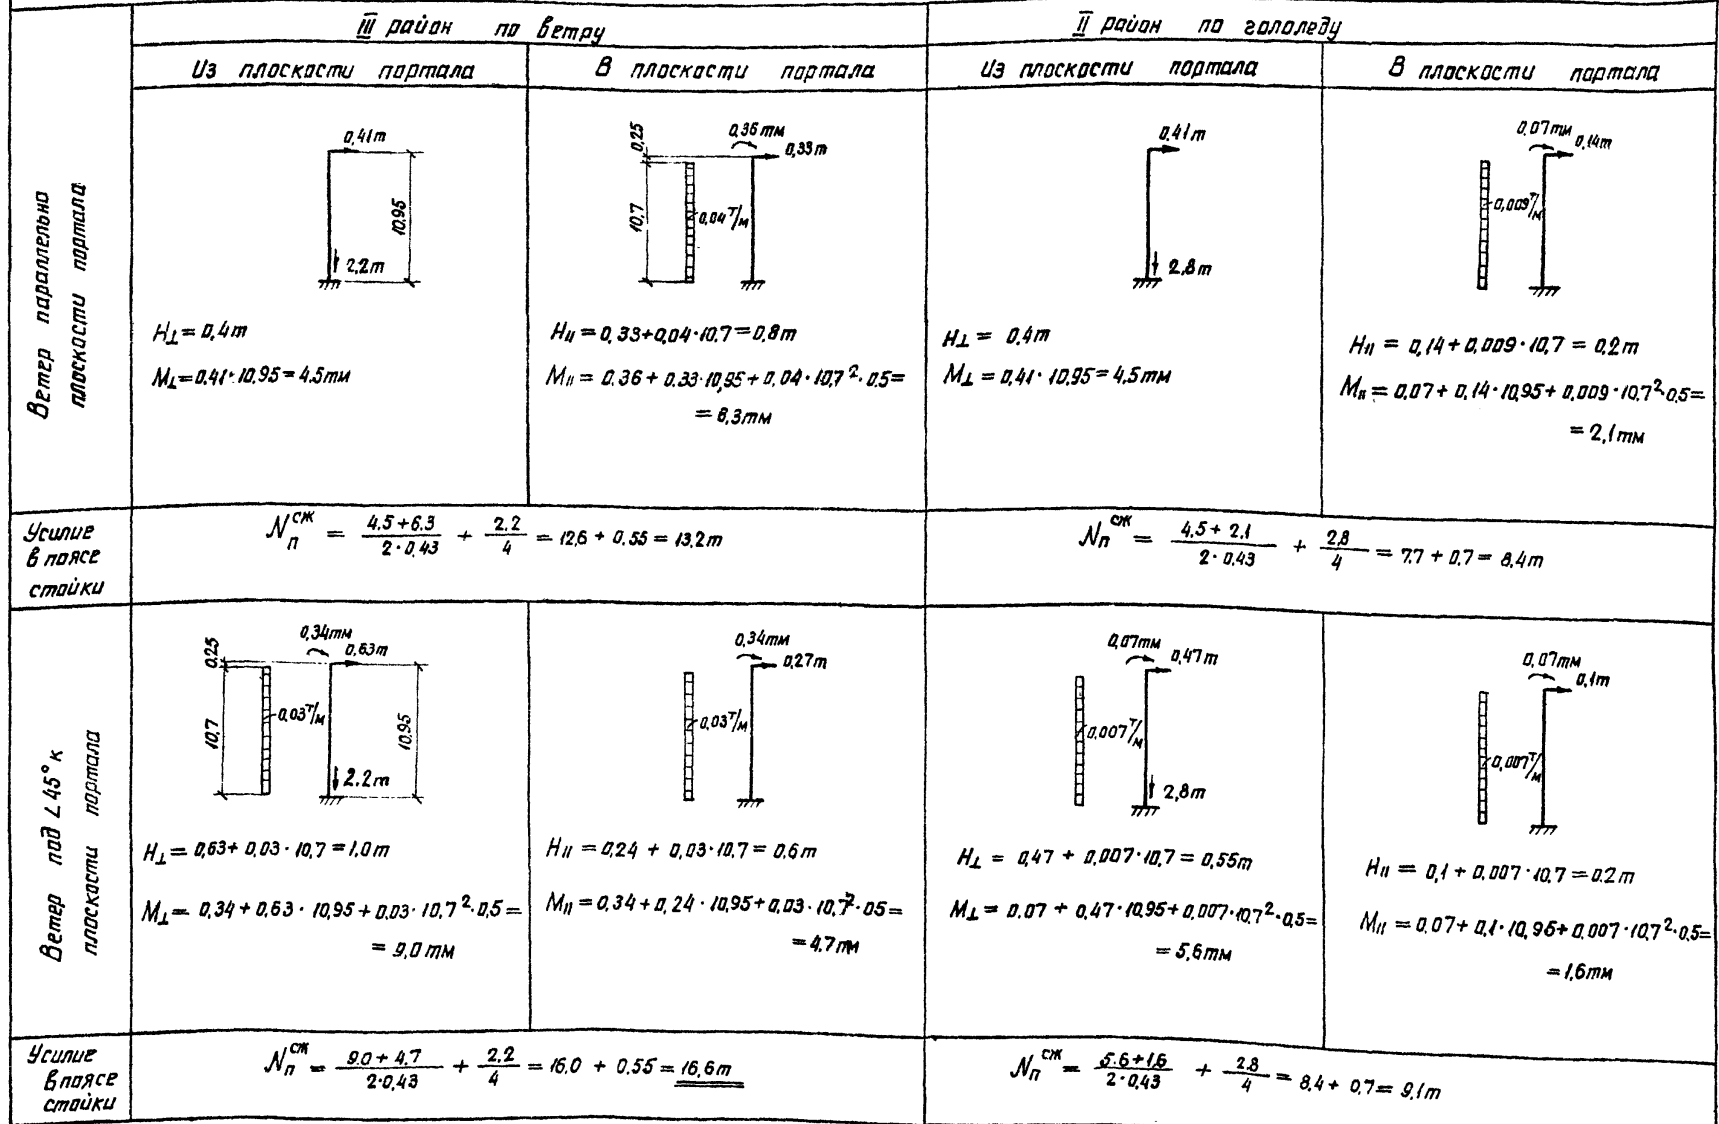 III район по ветру
II район по гололеду
Из плоскости портала
В плоскости портала
Из плоскости портала
В плоскости портала
Ветер параллельно
плоскости портала
0,41т
10,95
2,2т
H⊥=0,4т
M⊥=0,41·10,95=4,5тм
0,25
10,7
0,04т/м
0,36тм
0,33т
H||=0,33+0,04·10,7=0,8т
M||=0,36+0,33·10,95+0,04·10,7²·0,5=
=6,3тм
0,41т
2,8т
H⊥=0,4т
M⊥=0,41·10,95=4,5тм
0,07тм
0,14т
0,009т/м
H||=0,14+0,009·10,7=0,2т
M||=0,07+0,14·10,95+0,009·10,7²·0,5=
=2,1тм
Усилие
в поясе
стойки
Nп^сж = (4.5+6.3)/(2·0,43) + 2.2/4 = 12,6 + 0.55 = 13,2т
Nп^сж = (4,5+2.1)/(2·0.43) + 2,8/4 = 7.7 + 0.7 = 8,4т
Ветер под ∠45° к
плоскости портала
0,25
10,7
0,03т/м
0,34тм
0,63т
10,95
2.2т
H⊥=0,63+0,03·10,7=1,0т
M⊥=0,34+0,63·10,95+0,03·10,7²·0,5=
=9,0тм
0,34тм
0,27т
0,03т/м
H||=0,24+0,03·10,7=0,6т
M||=0,34+0,24·10,95+0,03·10,7²·05=
=4.7тм
0,07тм
0,47т
0,007т/м
2,8т
H⊥=0,47+0,007·10,7=0,55т
M⊥=0.07+0,47·10,95+0,007·10,7²·0,5=
=5,6тм
0,07тм
0,1т
0,007т/м
H||=0,1+0,007·10,7=0.2т
M||=0.07+0,1·10,95+0,007·10,7²·0,5=
=1,6тм
Усилие
в поясе
стойки
Nп^сж = (9.0+4,7)/(2·0,43) + 2,2/4 = 16.0 + 0.55 = 16,6т
Nп^сж = (5.6+1.6)/(2·0,43) + 2.8/4 = 8.4 + 0,7 = 9,1т